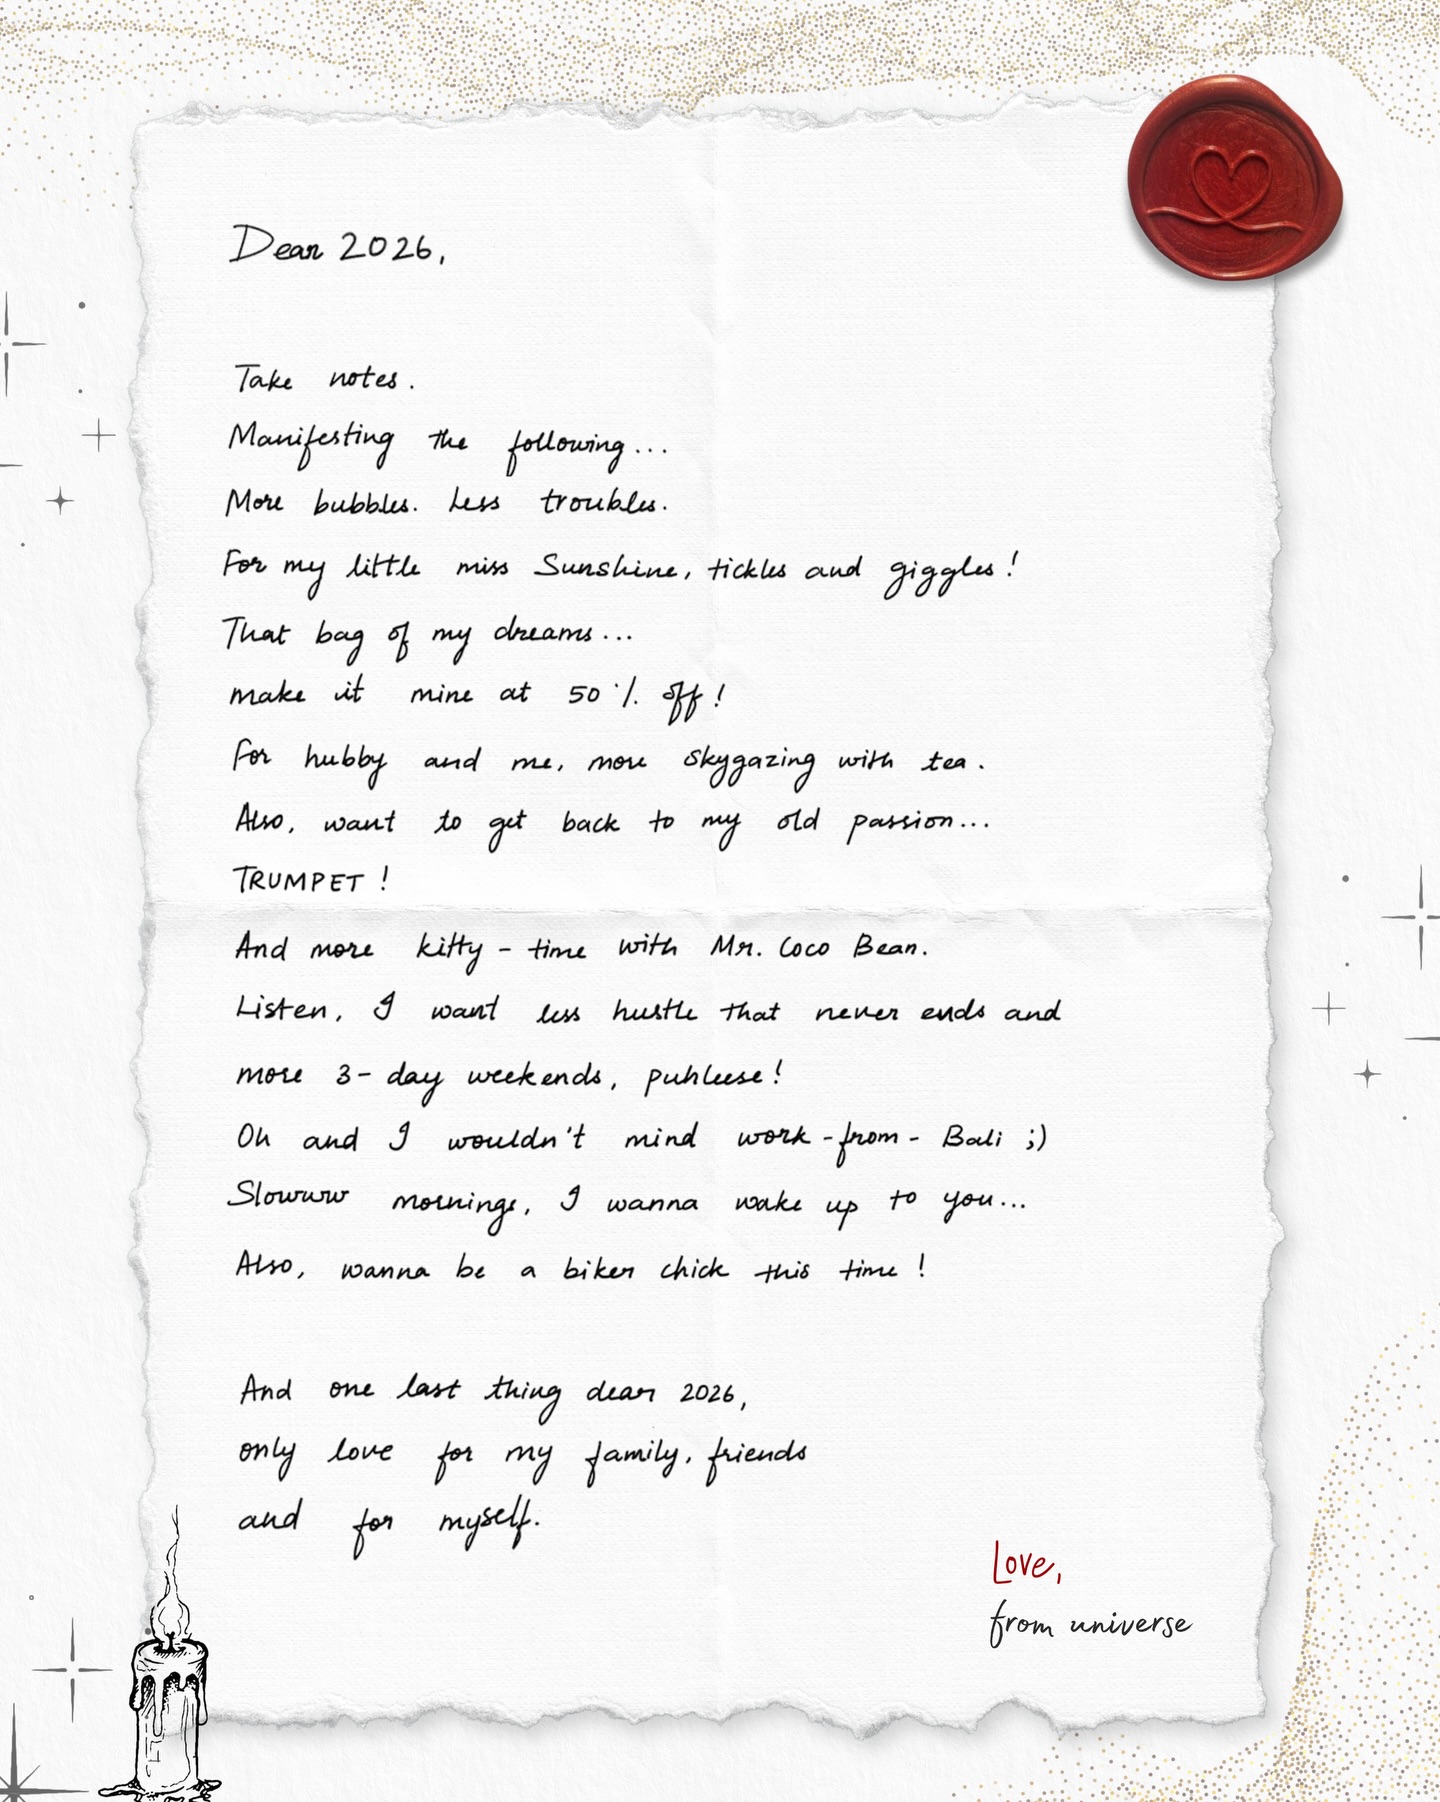 Dear 2026,
Take notes.
Manifesting the following...
More bubbles. Less troubles.
For my little miss Sunshine, tickles and giggles!
That bag of my dreams...
make it mine at 50% off!
For hubby and me, more skygazing with tea.
Also, want to get back to my old passion...
TRUMPET!
And more kitty-time with Mr. Coco Bean.
Listen, I want less hustle that never ends and
more 3-day weekends, puhleese!
Oh and I wouldn't mind work-from-Bali ;)
Slowww mornings, I wanna wake up to you...
Also, wanna be a biker chick this time!
And one last thing dear 2026,
only love for my family, friends
and for myself.
Love,
from universe